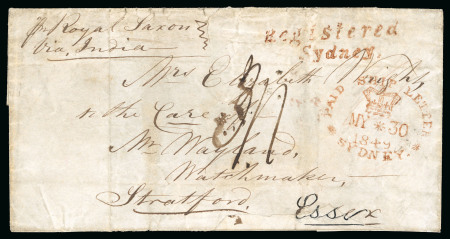 pr Royal Saxon
Via India
Registered
Sydney.
Mrs Elizabeth Wright,
to the Care of
Mr Wayland,
Watchmaker,
Stratford,
Essex
PAID SHIP LETTER
MY * 30
1849
SYDNEY